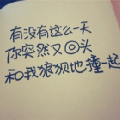 有没有这么一天
你突然又回头
和我狼狈地撞起